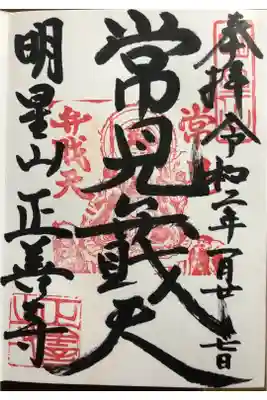 奉拝 令和二年一月廿
常見弁戝天
弁戝天
常
明星山 正善寺